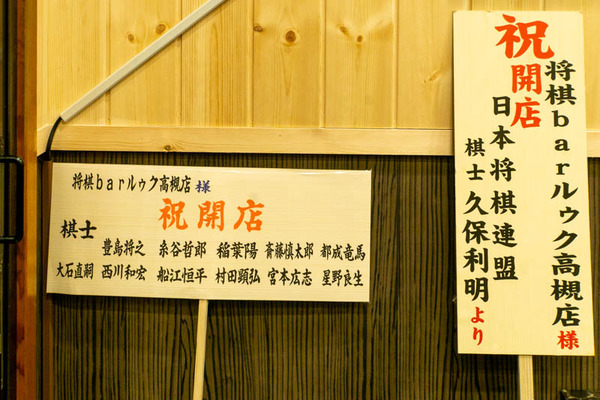 将棋barルゥク高槻店 様
祝開店
棋士
豊島将之 糸谷哲郎 稲葉陽 斎藤慎太郎 都成竜馬
大石直嗣 西川和宏 船江恒平 村田顕弘 宮本広志 星野良生
祝開店
将棋barルゥク高槻店様
日本将棋連盟
棋士 久保利明より